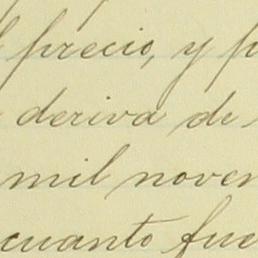 precio, y p
deriva de
mil noven
cuanto fue